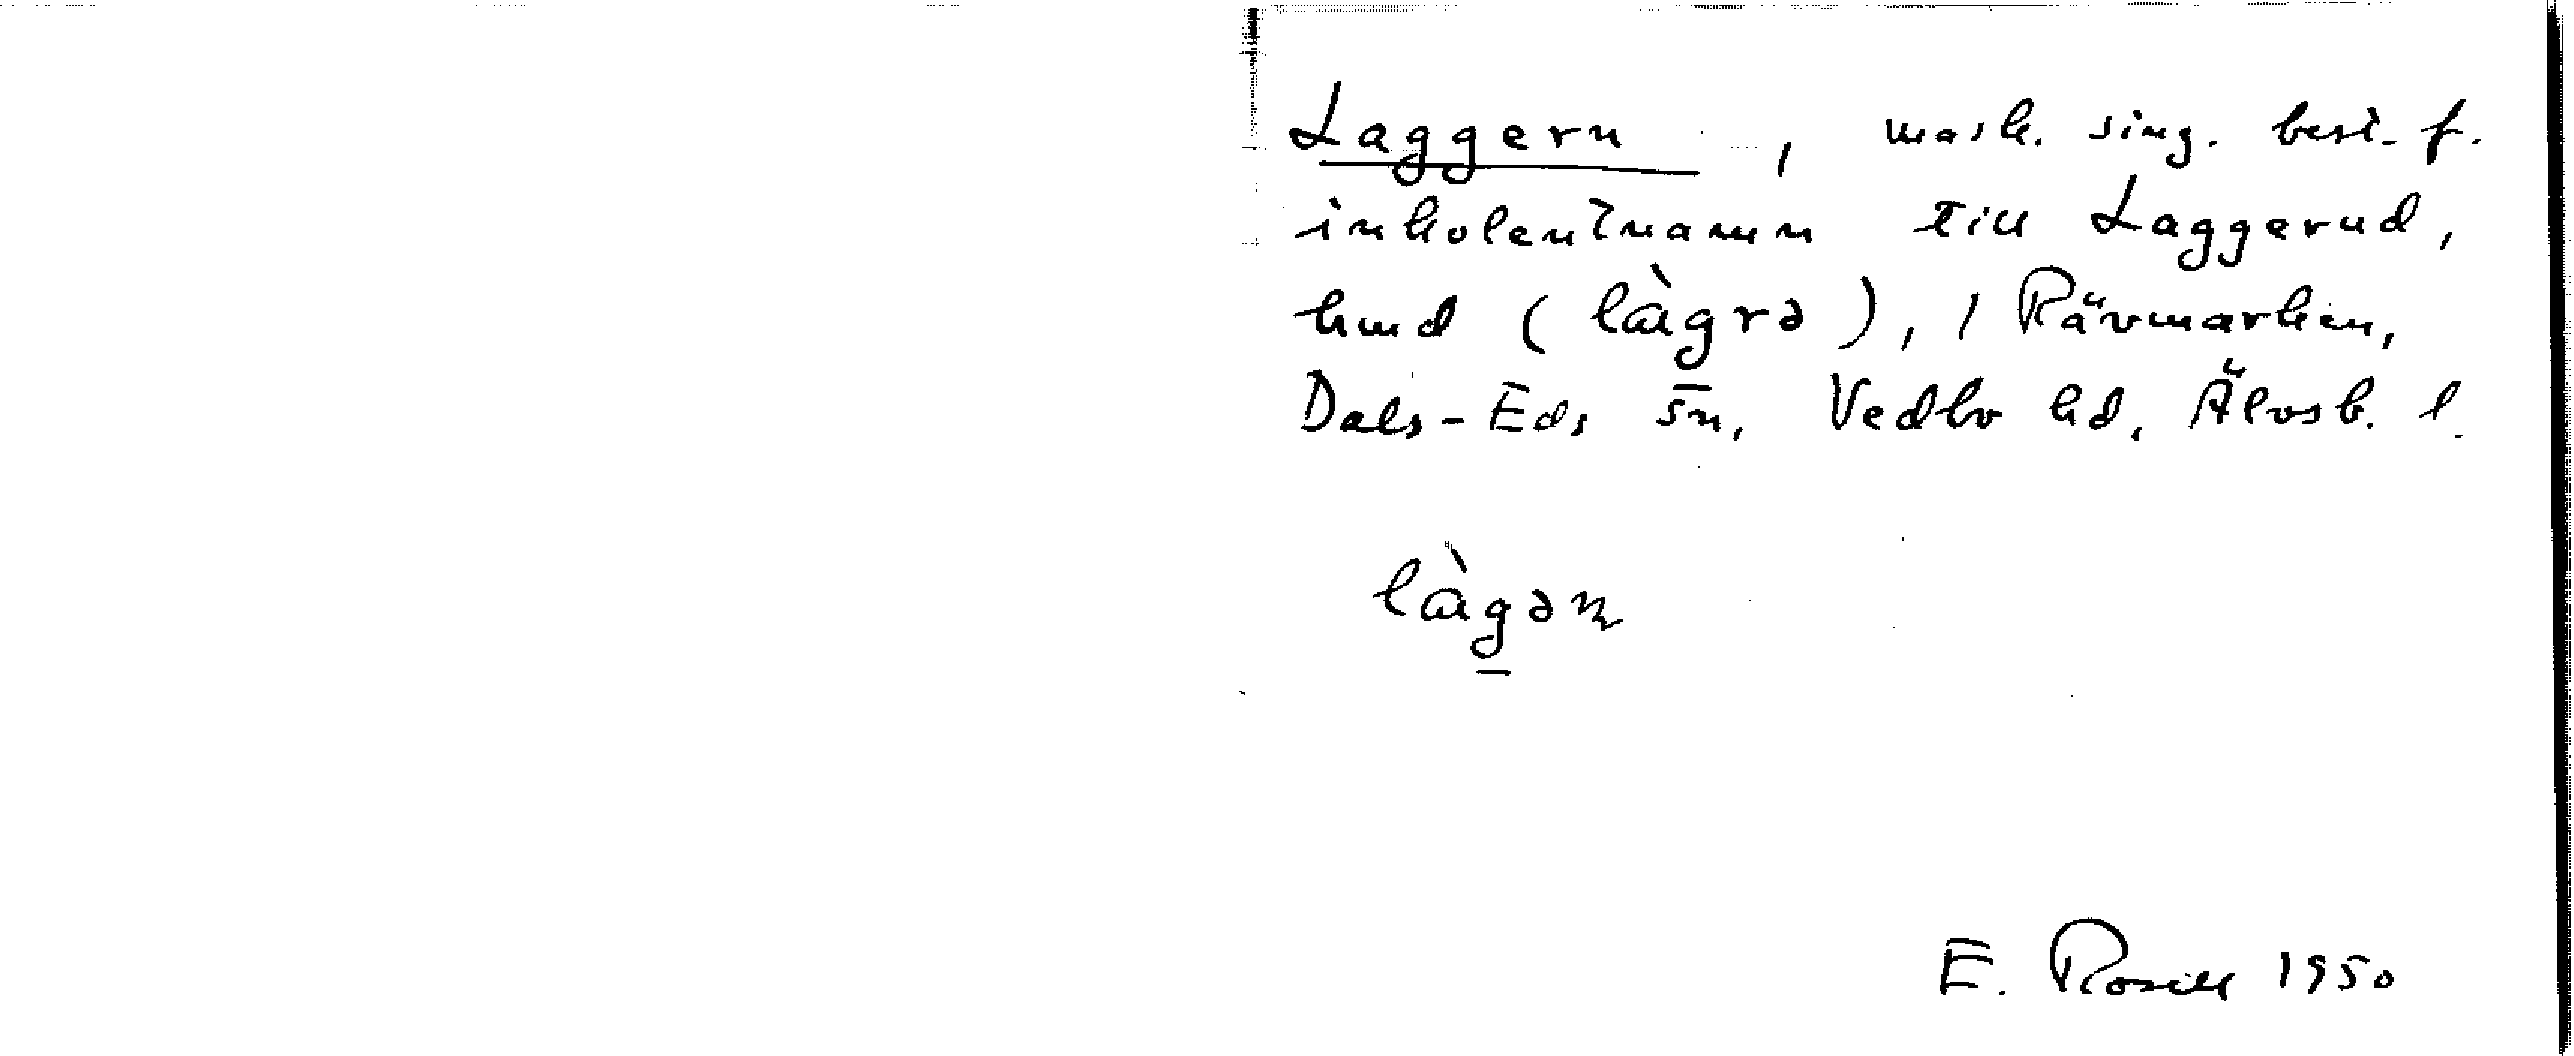 Laggern, mask. sing. best. f.
inkolentnamn till Laggerud,
hmd (làgrə), i Rävmarken,
Dals-Eds sn, Vedbo hd, Älvsb. l.
làgəɳ
E. Rosell 1950